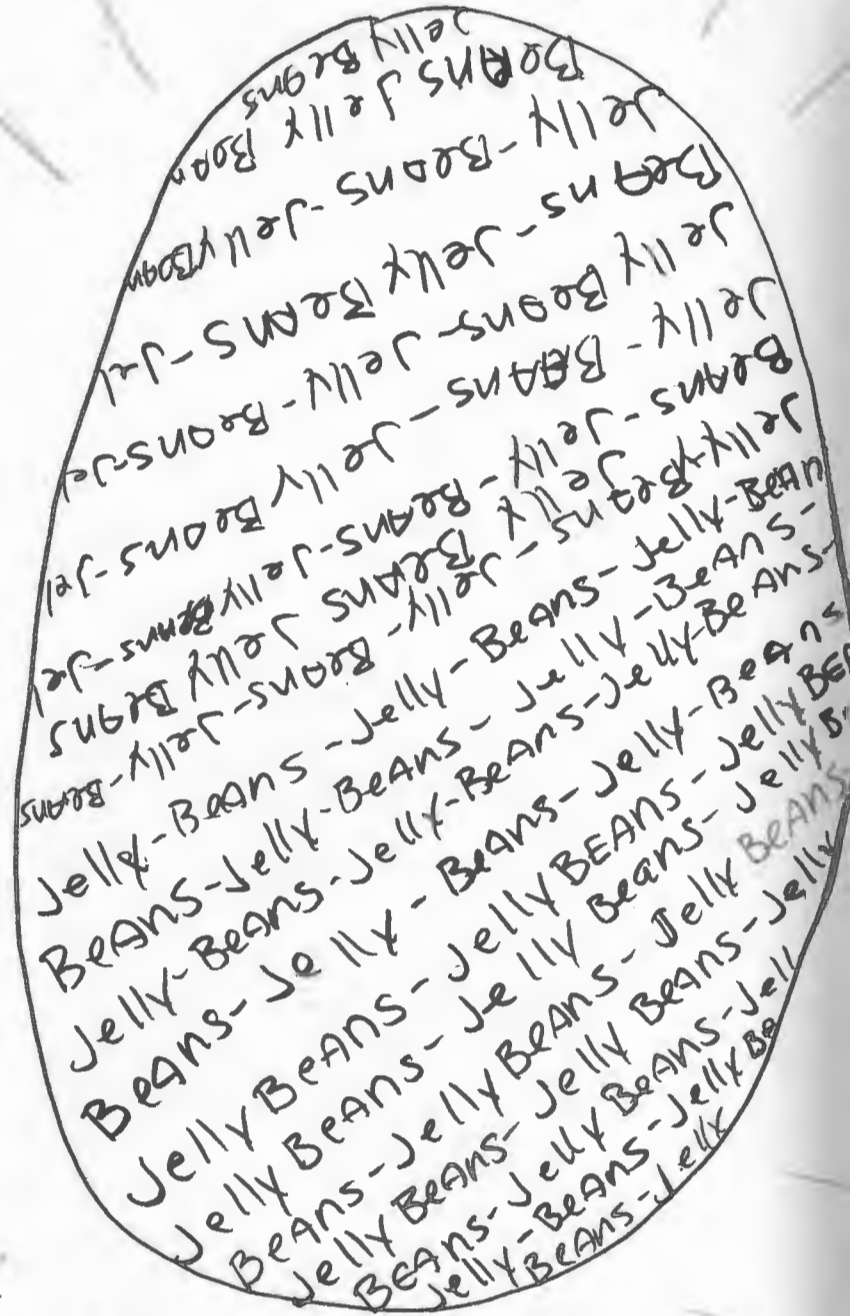 Jelly Beans
Beans Jelly Bean
Jelly-Beans-JellyBean
BeAns-Jelly Beans-Jel
Jelly Beans-Jelly-Beans-Je
Jelly-BeAns-Jelly Beans-Jel
BeAns-Jelly-BeAns-Jelly Beans-Jel
Jelly BeAns Jelly Beans
Jelly-BeAns-Jelly-Beans-Jelly-BeAns
Jelly-BeAns-Jelly-BeAns-Jelly-BeAn
BeAns-Jelly-BeAns-Jelly-BeAns-
Jelly-BeAns-Jelly-BeAns-Jelly-BeAns-
BeAns-Jelly-BeAns-Jelly-BeAns
Jelly BeAns-Jelly BEAns-Jelly BEA
Jelly BeAns-Jelly Beans-Jelly B
BeAns-Jelly BeAns-Jelly BeAns
Jelly BeAns-Jelly BeAns-Jelly
BEAns-Jelly BeAns-Jell
Jelly-BeAns-Jelly Be
BeAns-Jelly